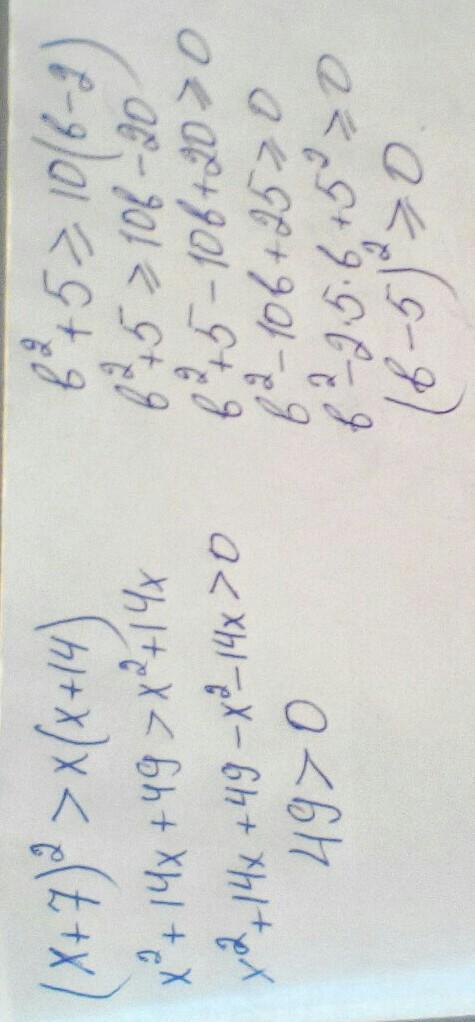 (x+7)² > x(x+14)
x² + 14x + 49 > x² + 14x
x² + 14x + 49 - x² - 14x > 0
49 > 0
в² + 5 ⩾ 10(в-2)
в² + 5 ⩾ 10в - 20
в² + 5 - 10в + 20 ⩾ 0
в² - 10в + 25 ⩾ 0
в² - 2·5·в + 5² ⩾ 0
(в-5)² ⩾ 0